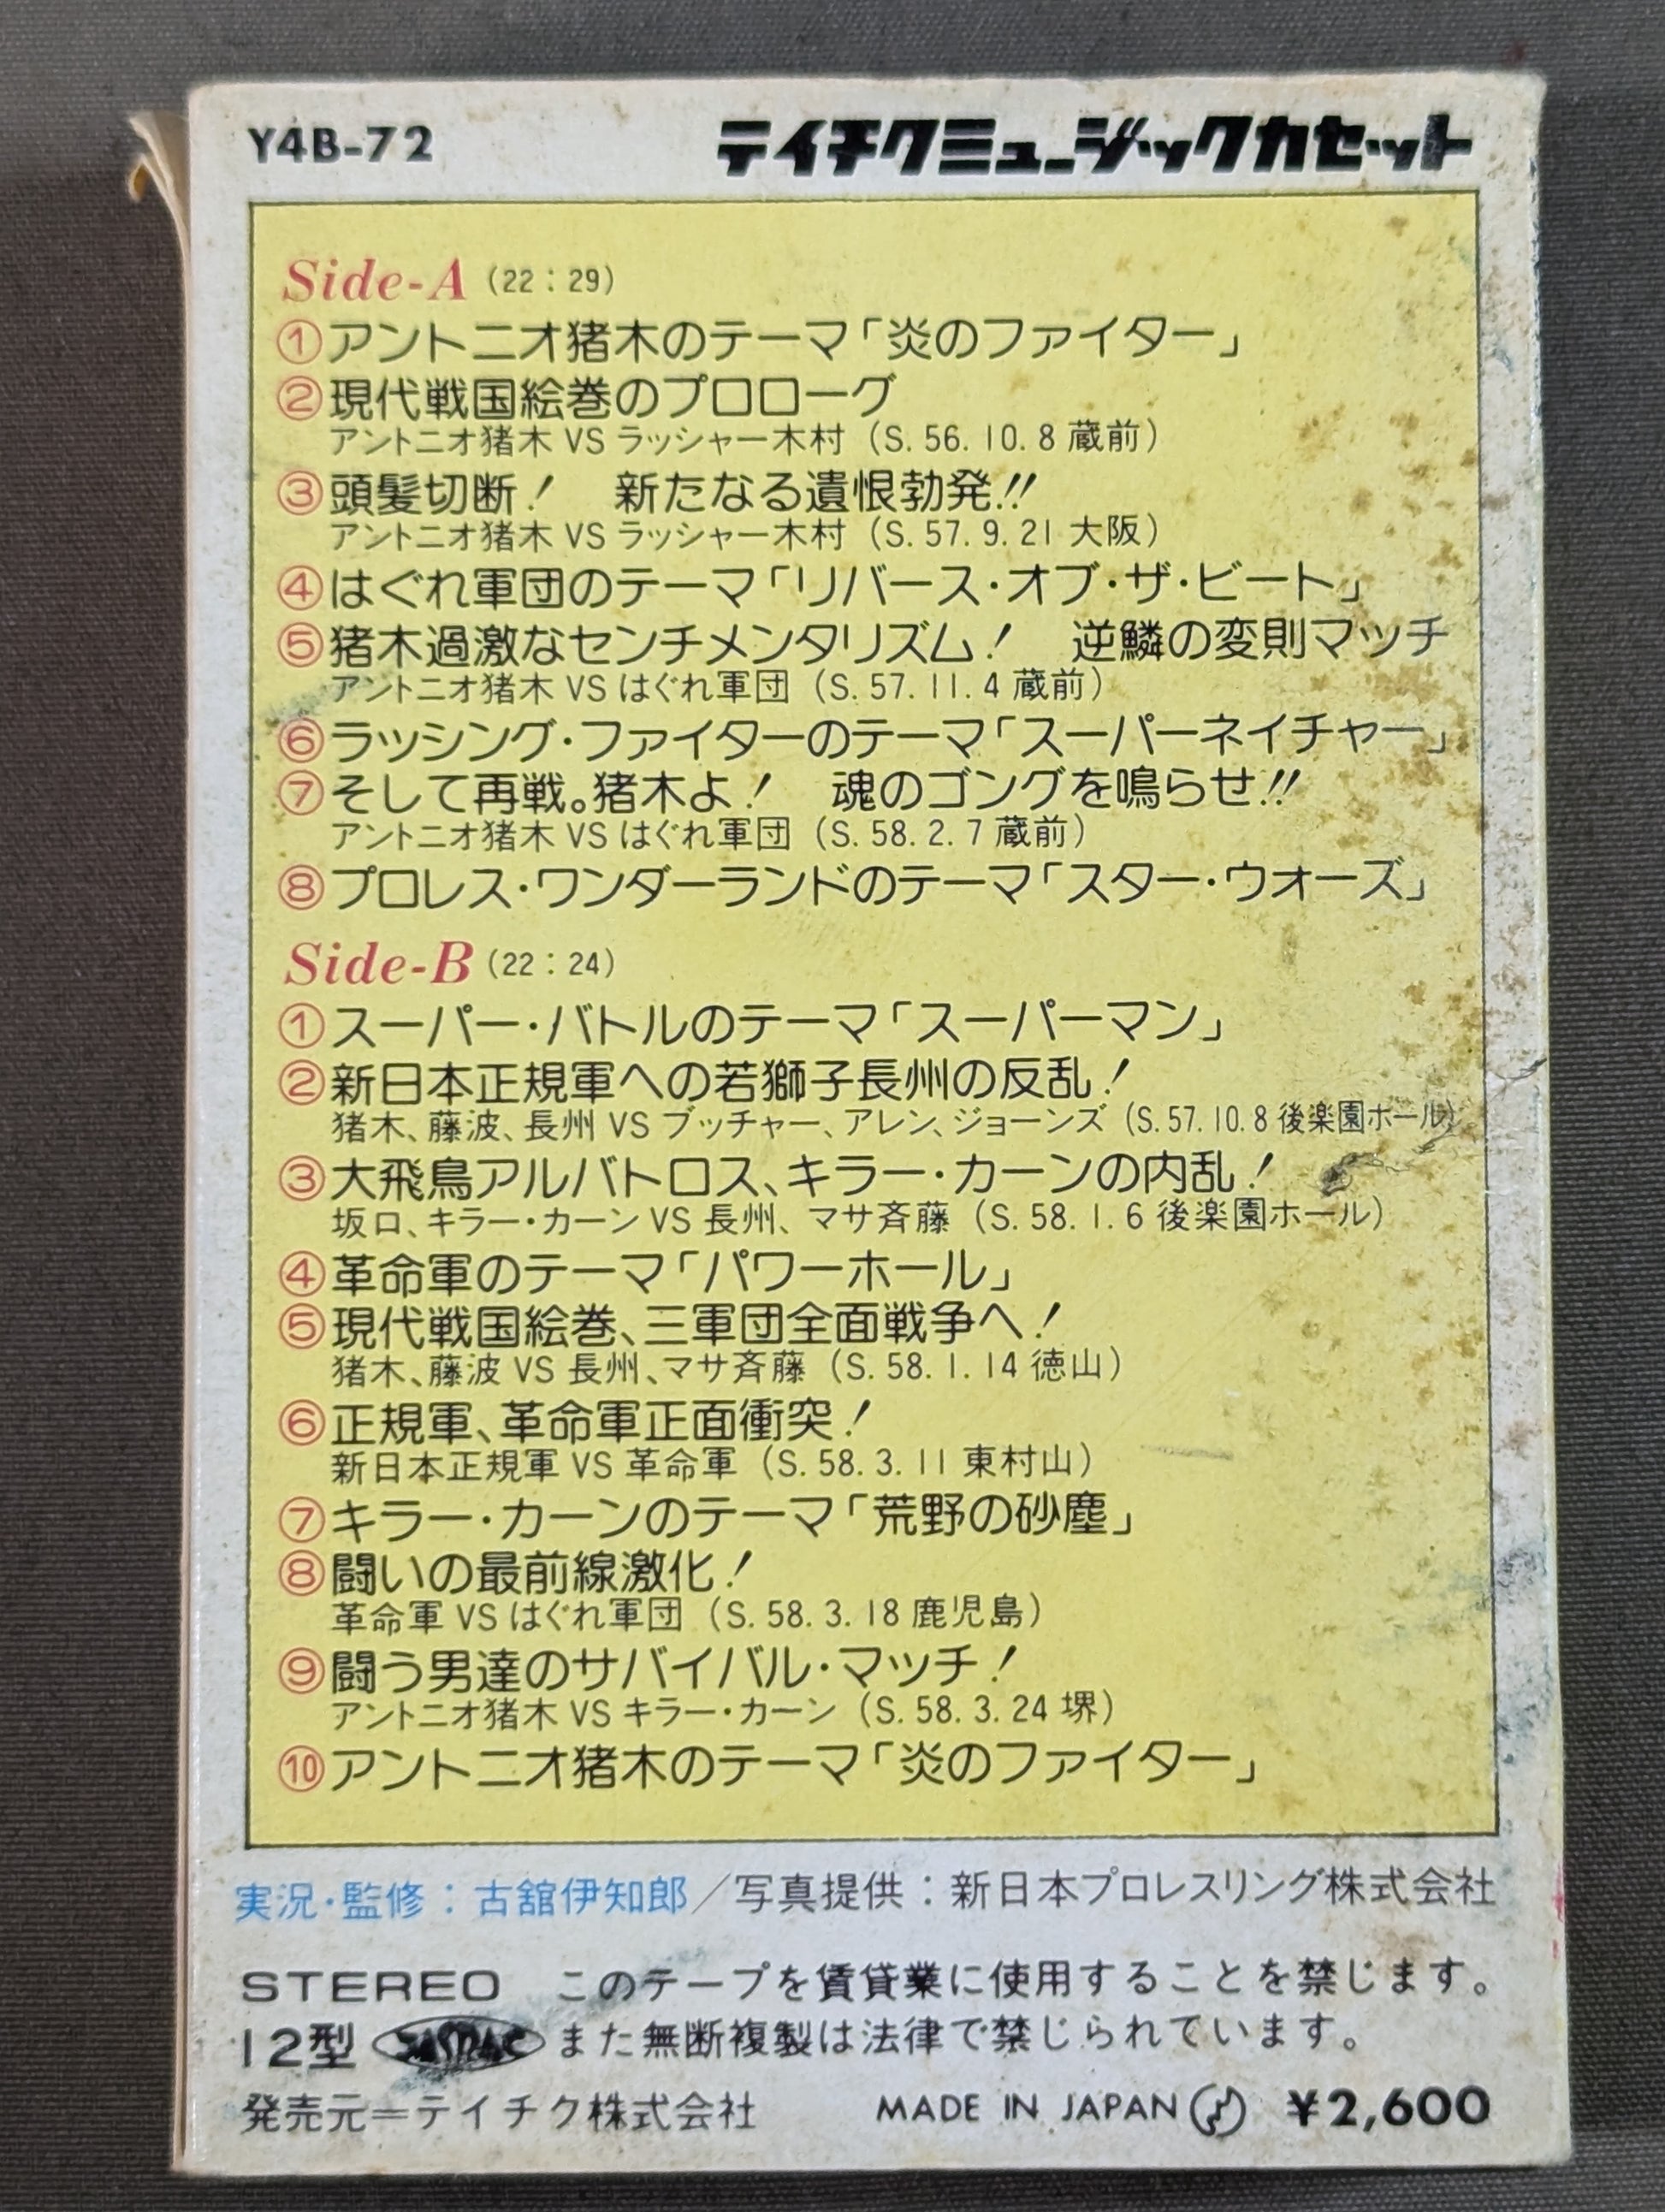 Y4B-72 テイチクミュージックカセット
Side-A (22：29)
①アントニオ猪木のテーマ「炎のファイター」
②現代戦国絵巻のプロローグ
アントニオ猪木 VS ラッシャー木村 (S. 56. 10. 8 蔵前)
③頭髪切断！　新たなる遺恨勃発!!
アントニオ猪木 VS ラッシャー木村 (S. 57. 9. 21 大阪)
④はぐれ軍団のテーマ「リバース・オブ・ザ・ビート」
⑤猪木過激なセンチメンタリズム！　逆鱗の変則マッチ
アントニオ猪木 VS はぐれ軍団 (S. 57. 11. 4 蔵前)
⑥ラッシング・ファイターのテーマ「スーパーネイチャー」
⑦そして再戦。猪木よ！　魂のゴングを鳴らせ!!
アントニオ猪木 VS はぐれ軍団 (S. 58. 2. 7 蔵前)
⑧プロレス・ワンダーランドのテーマ「スター・ウォーズ」
Side-B (22：24)
①スーパー・バトルのテーマ「スーパーマン」
②新日本正規軍への若獅子長州の反乱！
猪木、藤波、長州 VS ブッチャー、アレン、ジョーンズ (S. 57. 10. 8 後楽園ホール)
③大飛鳥アルバトロス、キラー・カーンの内乱！
坂口、キラー・カーン VS 長州、マサ斉藤 (S. 58. 1. 6 後楽園ホール)
④革命軍のテーマ「パワーホール」
⑤現代戦国絵巻、三軍団全面戦争へ！
猪木、藤波 VS 長州、マサ斉藤 (S. 58. 1. 14 徳山)
⑥正規軍、革命軍正面衝突！
新日本正規軍 VS 革命軍 (S. 58. 3. 11 東村山)
⑦キラー・カーンのテーマ「荒野の砂塵」
⑧闘いの最前線激化！
革命軍 VS はぐれ軍団 (S. 58. 3. 18 鹿児島)
⑨闘う男達のサバイバル・マッチ！
アントニオ猪木 VS キラー・カーン (S. 58. 3. 24 堺)
⑩アントニオ猪木のテーマ「炎のファイター」
実況・監修：古舘伊知郎／写真提供：新日本プロレスリング株式会社
STEREO このテープを賃貸業に使用することを禁じます。
12型 JASRAC また無断複製は法律で禁じられています。
発売元＝テイチク株式会社 MADE IN JAPAN ¥2,600